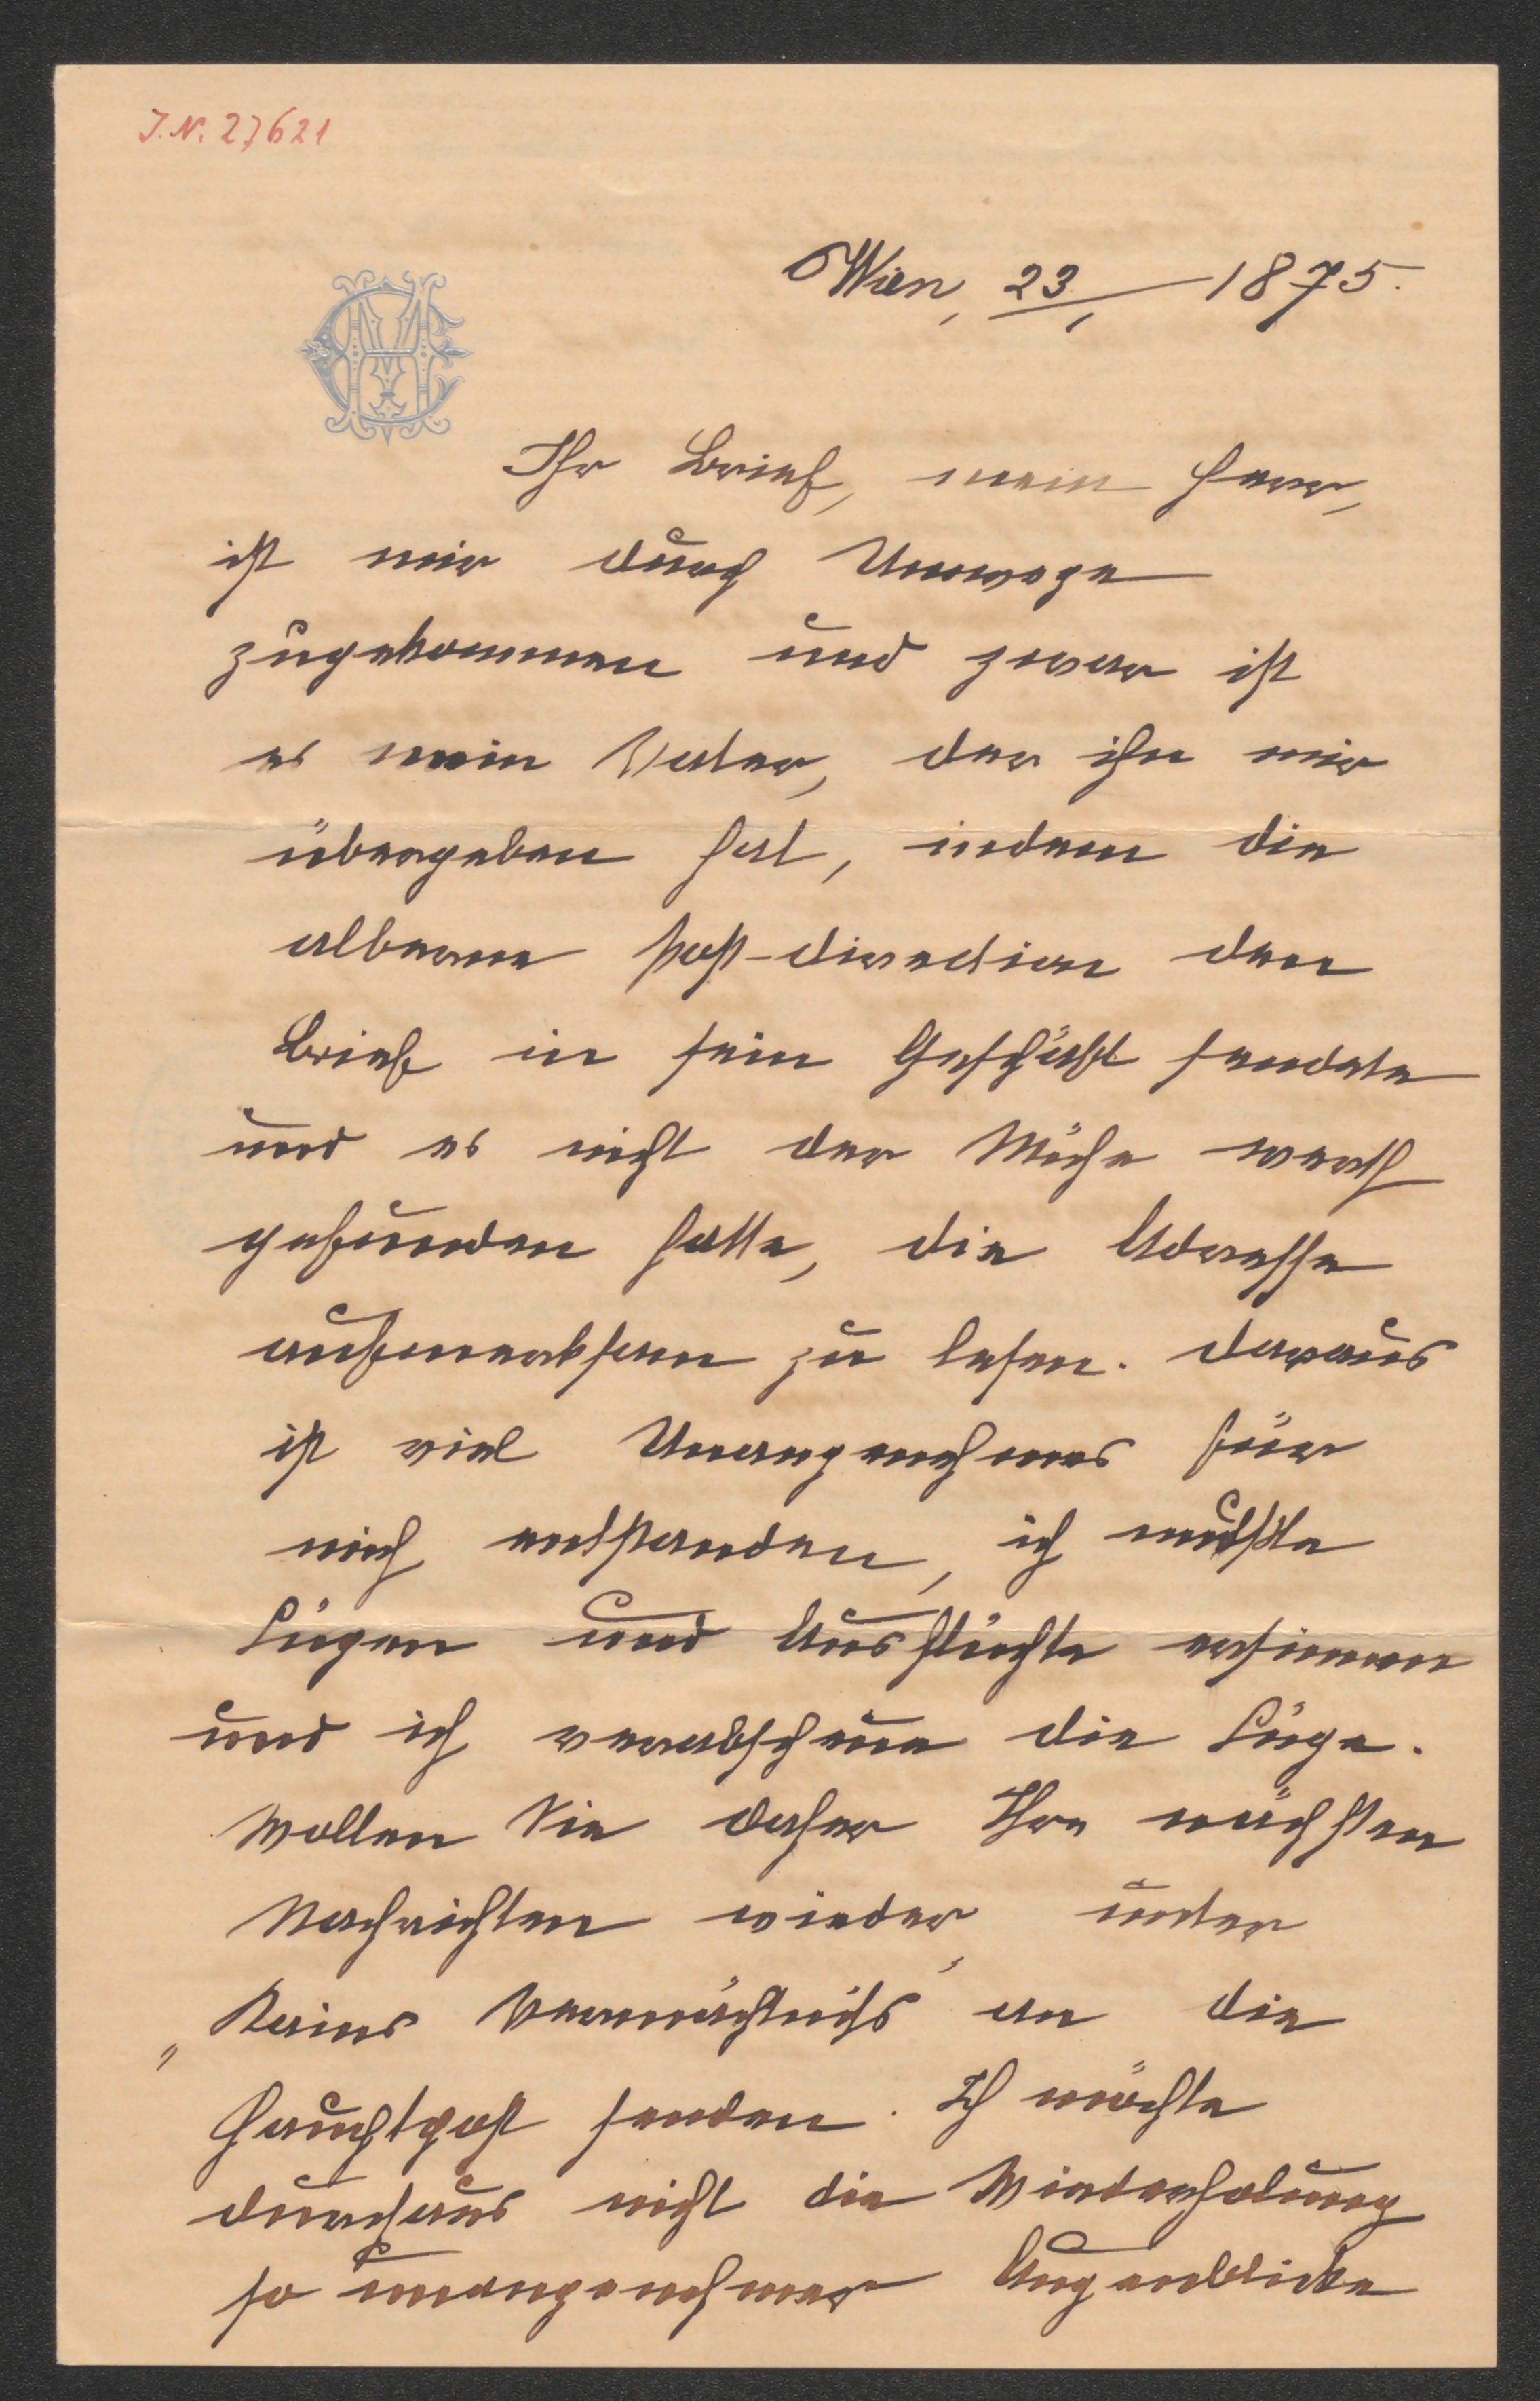 J.N. 27621
Wien, 23/1 1875.
Ihr Brief, mein Herr,
ist mir durch Umwege
zugekommen und zwar ist
es mein Vater, der ihn mir
übergeben hat, indem die
alberne Post-direction den
Brief in sein Geschäft sendete
und es nicht der Mühe werth
gefunden hatte, die Adresse
aufmerksam zu lesen. Daraus
ist viel Unangenehmes für
mich entstanden, ich mußte
Lügen und Ausflüchte ersinnen
und ich verabscheue die Lüge.
Wollen Sie daher Ihre nächsten
Nachrichten wieder unter
„Kains Vermächtniß“ an die
Hauptpost senden. Ich möchte
durchaus nicht die Wiederholung
so unangenehmer Augenblicke